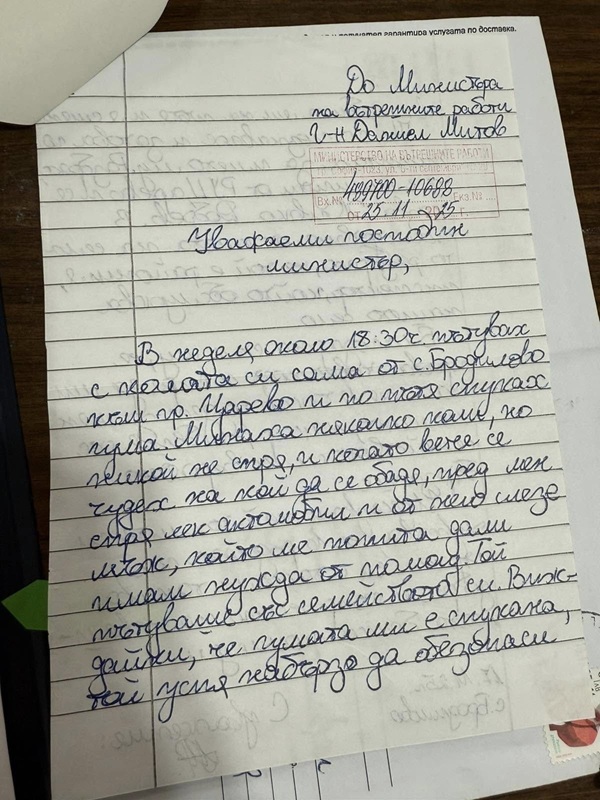 гарантира услугата по доставка.
До Министъра
на вътрешните работи
г-н Даниел Митов
МИНИСТЕРСТВО НА ВЪТРЕШНИТЕ РАБОТИ
Вх.№ 499700-10688 Екз.№
ОТ 25.11.2025
Уважаеми господин
министър,
В неделя около 18:30ч. пътувах
с колата си сама от с. Бродилово
към гр. Царево и по пътя спуках
гума. Минаха няколко коли, но
никой не спря, и когато вече се
чудех на кой да се обадя, пред мен
спря лек автомобил и от него слезе
мъж, който ме попита дали
имам нужда от помощ. Той
пътуваше със семейството си. Виж-
дайки, че гумата ми е спукана,
той успя набързо да обезопаси